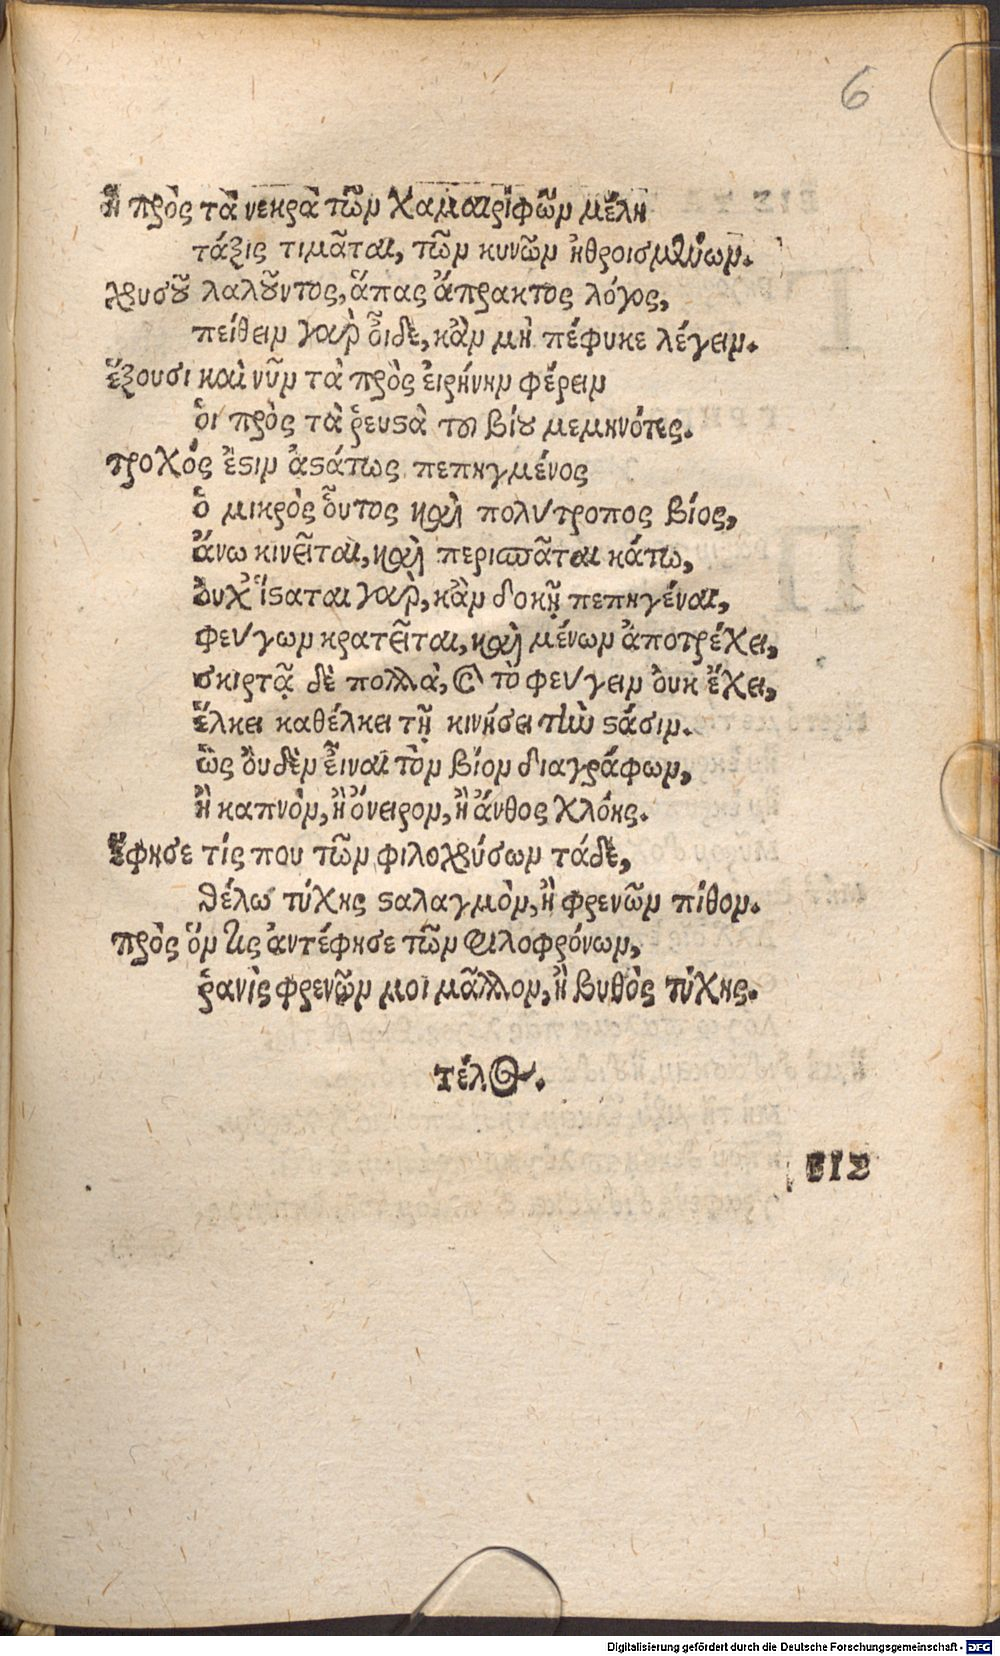 6
ἢ πρὸς τὰ νεκρὰ τῶν χαμαιριφῶν μέλη
τάξις τιμᾶται, τῶν κυνῶν ἠθροισμένων.
χρυσοῦ λαλοῦντος, ἅπας ἄπρακτος λόγος,
πείθειν γὰρ οἶδε, κἂν μὴ πέφυκε λέγειν.
ἕξουσι καὶ νῦν τὰ πρὸς εἰρήνην φέρειν
ὁι πρὸς τὰ ῥευστὰ του βίου μεμηνότες.
τροχός ἐστιν ἀστάτως πεπηγμένος
ὁ μικρὸς οὗτος καὶ πολύτροπος βίος,
ἄνω κινεῖται, καὶ περισπᾶται κάτω,
ὀυχ ἵσταται γὰρ, κἂν δοκῇ πεπηγέναι,
φεύγων κρατεῖται, καὶ μένων ἀποτρέχει,
σκιρτᾷ δὲ πολλὰ, καὶ τὸ φεύγειν ὀυκ ἔχει,
ἕλκει καθέλκει τῇ κινήσει τὴν στάσιν.
ὡς ὀυδὲν εἶναι τὸν βίον διαγράφων,
ἢ καπνὸν, ἢ ὄνειρον, ἢ ἄνθος χλόης.
ἔφησε τίς που τῶν φιλοχρύσων τάδε,
θέλω τύχης σταλαγμὸν, ἢ φρενῶν πίθον.
πρὸς ὅν τις ἀντέφησε τῶν φιλοφρόνων,
ῥανὶς φρενῶν μοι μᾶλλον, ἢ βυθὸς τύχης.
τέλος.
ΕΙΣ
Digitalisierung gefördert durch die Deutsche Forschungsgemeinschaft - DFG